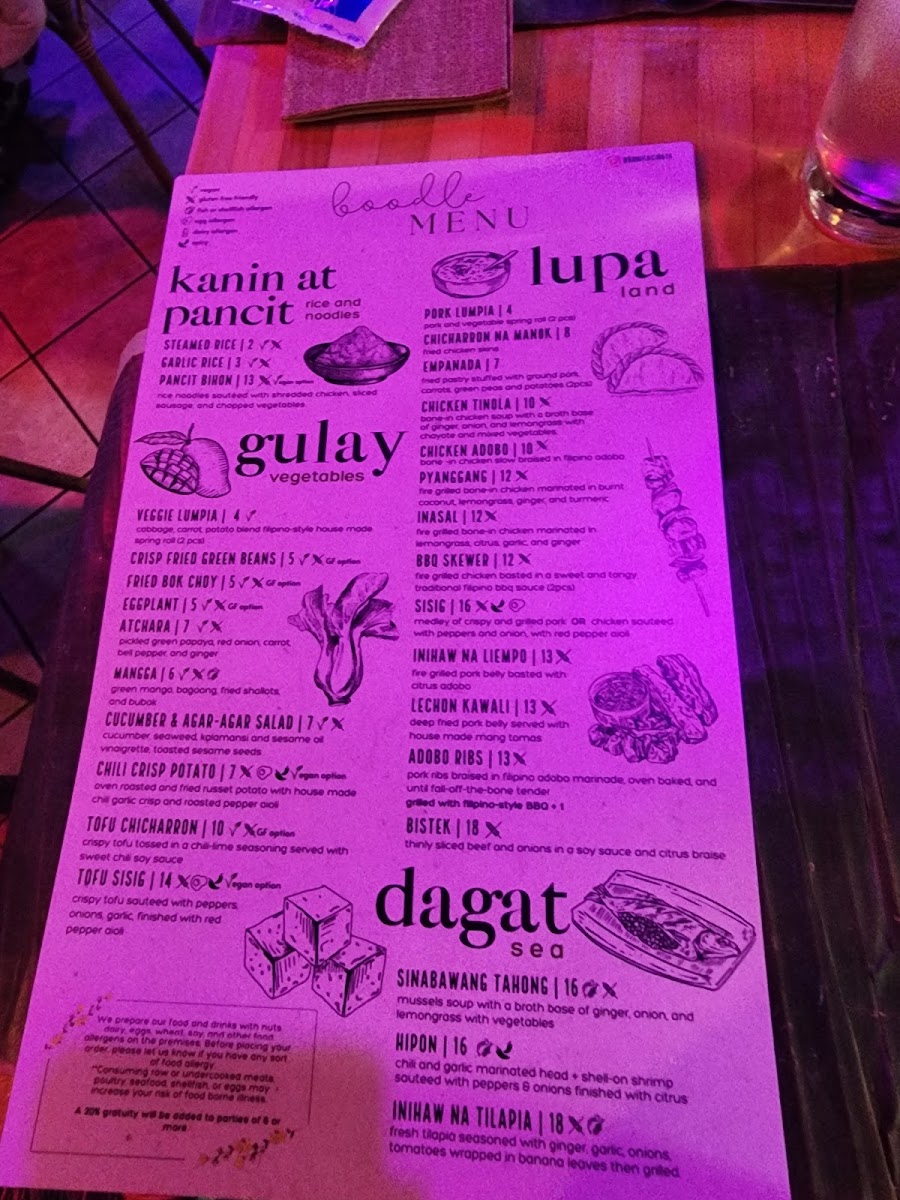 vegan
gluten free friendly
fish or shellfish allergen
egg allergen
dairy allergen
spicy
boodle
MENU
kanin at
pancit rice and
noodles
STEAMED RICE | 2
GARLIC RICE | 3
PANCIT BIHON | 13 Vegan option
rice noodles sautéed with shredded chicken, sliced
sausage, and chopped vegetables
gulay
vegetables
VEGGIE LUMPIA | 4
cabbage, carrot, potato blend filipino-style house made
spring roll (2 pcs)
CRISP FRIED GREEN BEANS | 5 GF option
FRIED BOK CHOY | 5 GF option
EGGPLANT | 5 GF option
ATCHARA | 7
pickled green papaya, red onion, carrot,
bell pepper, and ginger
MANGGA | 6
green mango, bagoong, fried shallots,
and bubuk
CUCUMBER & AGAR-AGAR SALAD | 7
cucumber, seaweed, kalamansi and sesame oil
vinaigrette, toasted sesame seeds
CHILI CRISP POTATO | 7 Vegan option
oven roasted and fried russet potato with house made
chili garlic crisp and roasted pepper aioli
TOFU CHICHARRON | 10 GF option
crispy tofu tossed in a chili-lime seasoning served with
sweet chili soy sauce
TOFU SISIG | 14 Vegan option
crispy tofu sauteed with peppers,
onions, garlic, finished with red
pepper aioli
We prepare our food and drinks with nuts,
dairy, eggs, wheat, soy, and other food
allergens on the premises. Before placing your
order, please let us know if you have any sort
of food allergy
**Consuming raw or undercooked meats,
poultry, seafood, shellfish, or eggs may
increase your risk of food borne illness.
A 20% gratuity will be added to parties of 6 or
more
lupa
land
PORK LUMPIA | 4
pork and vegetable spring roll (2 pcs)
CHICHARRON NA MANOK | 8
fried chicken skins
EMPANADA | 7
fried pastry stuffed with ground pork,
carrots, green peas and potatoes (2pcs)
CHICKEN TINOLA | 10
bone-in chicken soup with a broth base
of ginger, onion, and lemongrass with
chayote and mixed vegetables
CHICKEN ADOBO | 10
bone -in chicken slow braised in filipino adobo
PYANGGANG | 12
fire grilled bone-in chicken marinated in burnt
coconut, lemongrass, ginger, and turmeric
INASAL | 12
fire grilled bone-in chicken marinated in
lemongrass, citrus, garlic, and ginger
BBQ SKEWER | 12
fire grilled chicken basted in a sweet and tangy
traditional filipino bbq sauce (2pcs)
SISIG | 16
medley of crispy and grilled pork OR chicken sauteed
with peppers and onion, with red pepper aioli
INIHAW NA LIEMPO | 13
fire grilled pork belly basted with
citrus adobo
LECHON KAWALI | 13
deep fried pork belly served with
house made mang tomas
ADOBO RIBS | 13
pork ribs braised in filipino adobo marinade, oven baked, and
until fall-off-the-bone tender
grilled with filipino-style BBQ + 1
BISTEK | 18
thinly sliced beef and onions in a soy sauce and citrus braise
dagat
sea
SINABAWANG TAHONG | 16
mussels soup with a broth base of ginger, onion, and
lemongrass with vegetables
HIPON | 16
chili and garlic marinated head + shell-on shrimp
sauteed with peppers & onions finished with citrus
INIHAW NA TILAPIA | 18
fresh tilapia seasoned with ginger, garlic, onions,
tomatoes wrapped in banana leaves then grilled